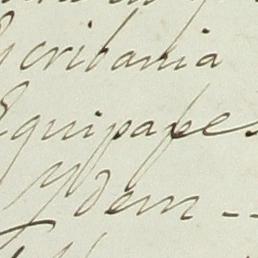 Escribania
Equipages
Ydem --